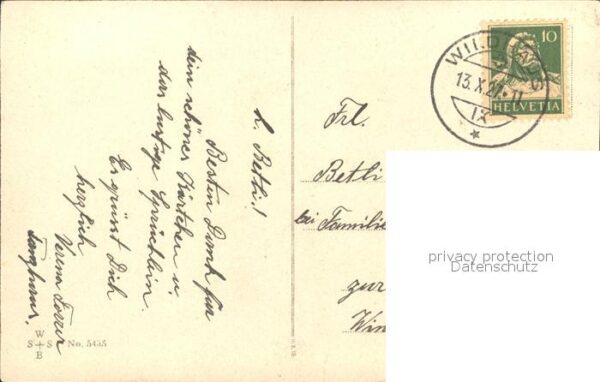 L. Betli!
Besten Dank für
dein schönes Kärtchen u.
das lustige Sprüchlein.
Es grüsst Dich
herzlich
Verena
W
S+S No. 5455
B
10
HELVETIA
13.X.21
IX
Frl.
Betli
bei Familie
zur
Win
privacy protection
Datenschutz